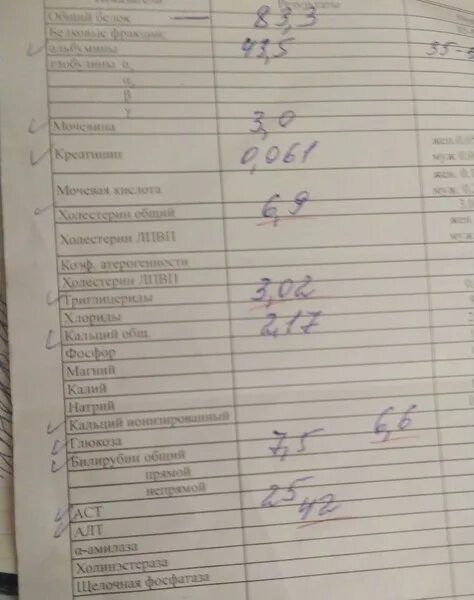 Результаты
Общий белок 83,3
Белковые фракции,
альбумины 43,5 35-
глобулины α₁
α₂
β
γ
Мочевина 3,0
Креатинин 0,061 жен.
муж.
Мочевая кислота жен.
муж.
Холестерин общий 6,9
Холестерин ЛПВП жен.
муж.
Коэф. атерогенности
Холестерин ЛПВП
Триглицериды 3,02
Хлориды
Кальций общ. 2,17
Фосфор
Магний
Калий
Натрий
Кальций ионизированный
Глюкоза 6,6
Билирубин общий 7,5
прямой
непрямой
АСТ 25
АЛТ 42
α-амилаза
Холинэстераза
Щелочная фосфатаза